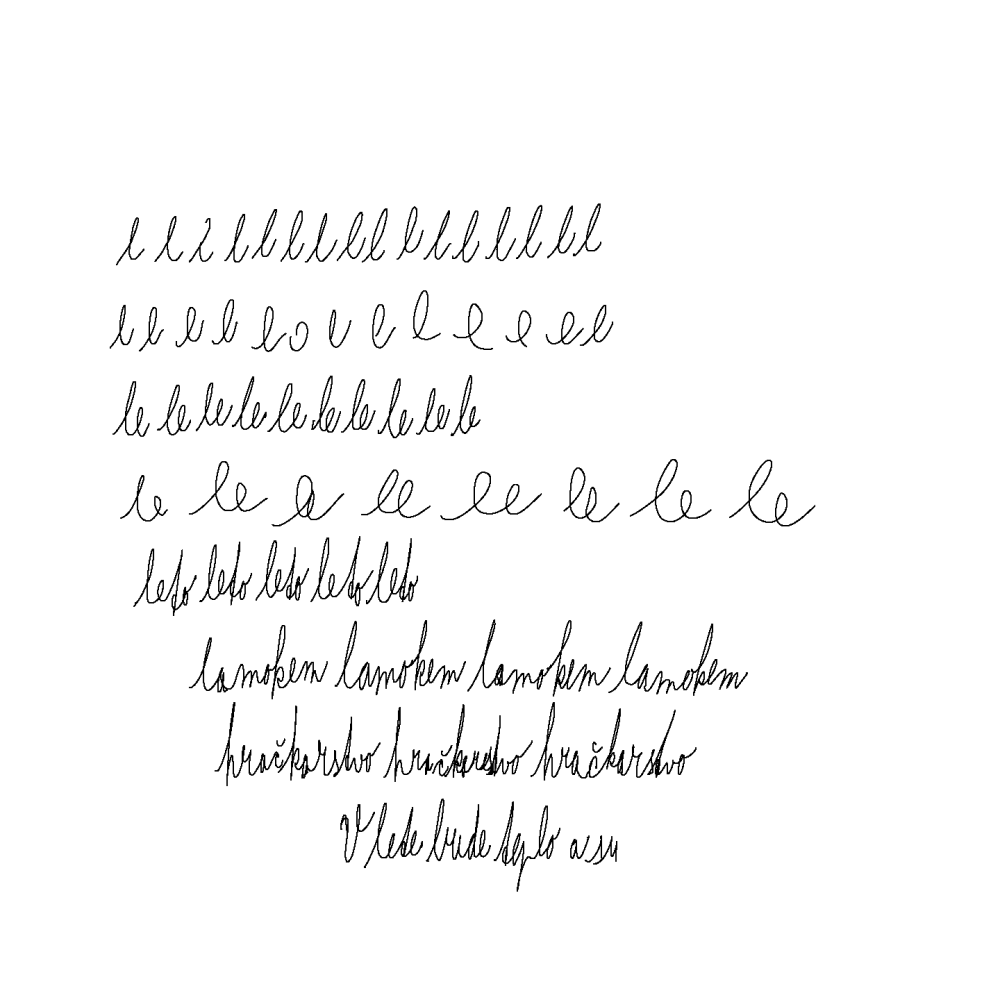 l l l l l l l l l l l l l l l l
e e e e e e e e e e e e e
le le le le le le le le le le
le le le le le le le le
leto leto leto leto leto
lamokem lamokem lamokem lamokem
hračkarstvo hračkarstvo hračkarstvo
V lete bude teplo a su